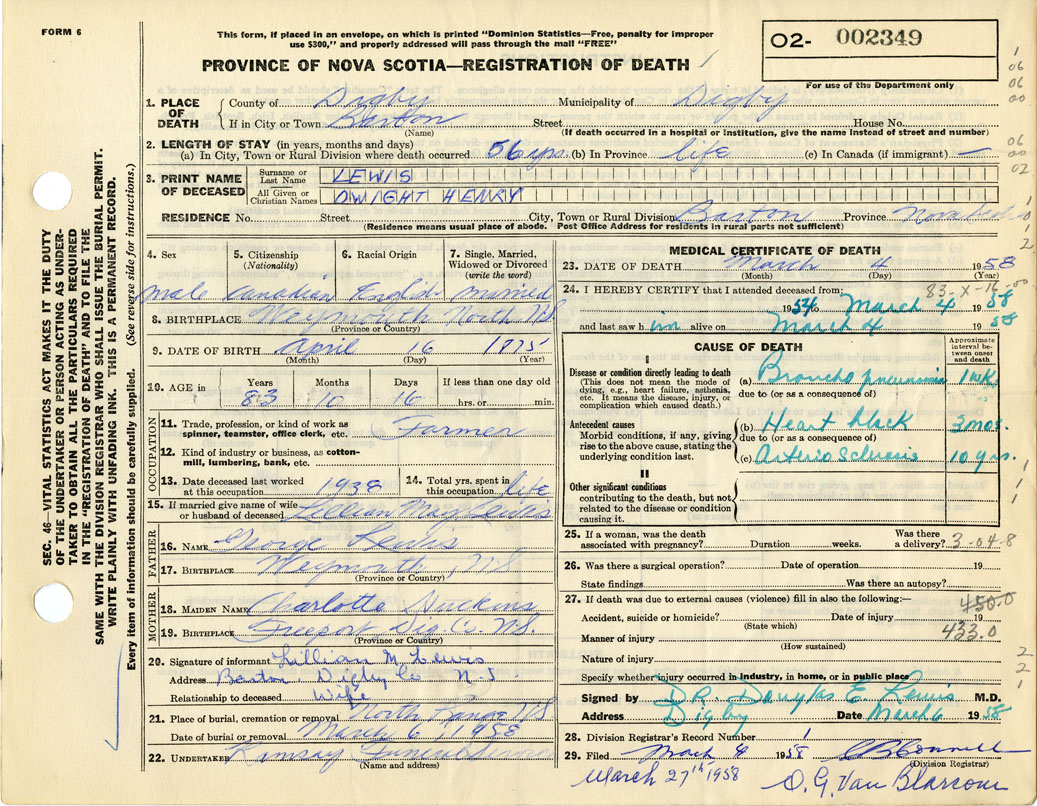 FORM 6
This form, if placed in an envelope, on which is printed "Dominion Statistics—Free, penalty for improper
use $300," and properly addressed will pass through the mail "FREE"
O2- 002349
For use of the Department only
PROVINCE OF NOVA SCOTIA—REGISTRATION OF DEATH
1. PLACE OF DEATH County of Digby Municipality of Digby
If in City or Town Barton Street House No.
(Name) (If death occurred in a hospital or institution, give the name instead of street and number)
2. LENGTH OF STAY (in years, months and days)
(a) In City, Town or Rural Division where death occurred 56 yrs. (b) In Province life (c) In Canada (if immigrant) —
3. PRINT NAME OF DECEASED
Surname or Last Name LEWIS
All Given or Christian Names DWIGHT HENRY
RESIDENCE No. Street City, Town or Rural Division Barton Province Nova
(Residence means usual place of abode. Post Office Address for residents in rural parts not sufficient)
4. Sex 5. Citizenship (Nationality) 6. Racial Origin 7. Single, Married, Widowed or Divorced (write the word)
male Canadian English married
8. BIRTHPLACE Weymouth North N.S.
(Province or Country)
9. DATE OF BIRTH April 16 1875
(Month) (Day) (Year)
10. AGE in Years Months Days If less than one day old
83 10 16 hrs. or min.
OCCUPATION
11. Trade, profession, or kind of work as spinner, teamster, office clerk, etc. Farmer
12. Kind of industry or business, as cotton-mill, lumbering, bank, etc.
13. Date deceased last worked at this occupation 1938 14. Total yrs. spent in this occupation life
15. If married give name of wife or husband of deceased Lillian May Lewis
FATHER
16. NAME George Lewis
17. BIRTHPLACE Weymouth, N.S.
(Province or Country)
MOTHER
18. MAIDEN NAME Charlotte Huckins
19. BIRTHPLACE Freeport Dig. Co. N.S.
(Province or Country)
20. Signature of informant Lillian M Lewis
Address Barton Digby Co N.S.
Relationship to deceased Wife
21. Place of burial, cremation or removal North Range N.S.
Date of burial or removal March 6, 1958
22. UNDERTAKER Ramsay Funeral
(Name and address)
MEDICAL CERTIFICATE OF DEATH
23. DATE OF DEATH March 4 1958
(Month) (Day) (Year)
83-X-16-00
24. I HEREBY CERTIFY that I attended deceased from:
1954 to March 4 1958
and last saw him alive on March 4 1958
CAUSE OF DEATH
Approximate interval between onset and death
I
Disease or condition directly leading to death
(This does not mean the mode of dying, e.g., heart failure, asthenia, etc. It means the disease, injury, or complication which caused death.)
(a) Broncho pneumonia 1 wk.
due to (or as a consequence of)
Antecedent causes
Morbid conditions, if any, giving rise to the above cause, stating the underlying condition last.
(b) Heart block 3 mos.
due to (or as a consequence of)
(c) Arterio Sclerosis 10 yrs.
II
Other significant conditions
contributing to the death, but not related to the disease or condition causing it.
25. If a woman, was the death associated with pregnancy? Duration weeks. Was there a delivery? 3-04-8
26. Was there a surgical operation? Date of operation 19
State findings Was there an autopsy?
27. If death was due to external causes (violence) fill in also the following:—
450.0
Accident, suicide or homicide? Date of injury 19
(State which)
433.0
Manner of injury
(How sustained)
Nature of injury
Specify whether injury occurred in industry, in home, or in public place
Signed by DR. Douglas E. Lewis M.D.
Address Digby Date March 6 1958
28. Division Registrar's Record Number 1
29. Filed March 8 1958
(Division Registrar)
March 27th 1958 O. G. Van Blarcom
SEC. 46—VITAL STATISTICS ACT MAKES IT THE DUTY
OF THE UNDERTAKER OR PERSON ACTING AS UNDER-
TAKER TO OBTAIN ALL THE PARTICULARS REQUIRED
IN THE "REGISTRATION OF DEATH" AND TO FILE THE
SAME WITH THE DIVISION REGISTRAR WHO SHALL ISSUE THE BURIAL PERMIT.
WRITE PLAINLY WITH UNFADING INK. THIS IS A PERMANENT RECORD.
Every item of information should be carefully supplied. (See reverse side for instructions.)
1
06
06
00
06
00
02